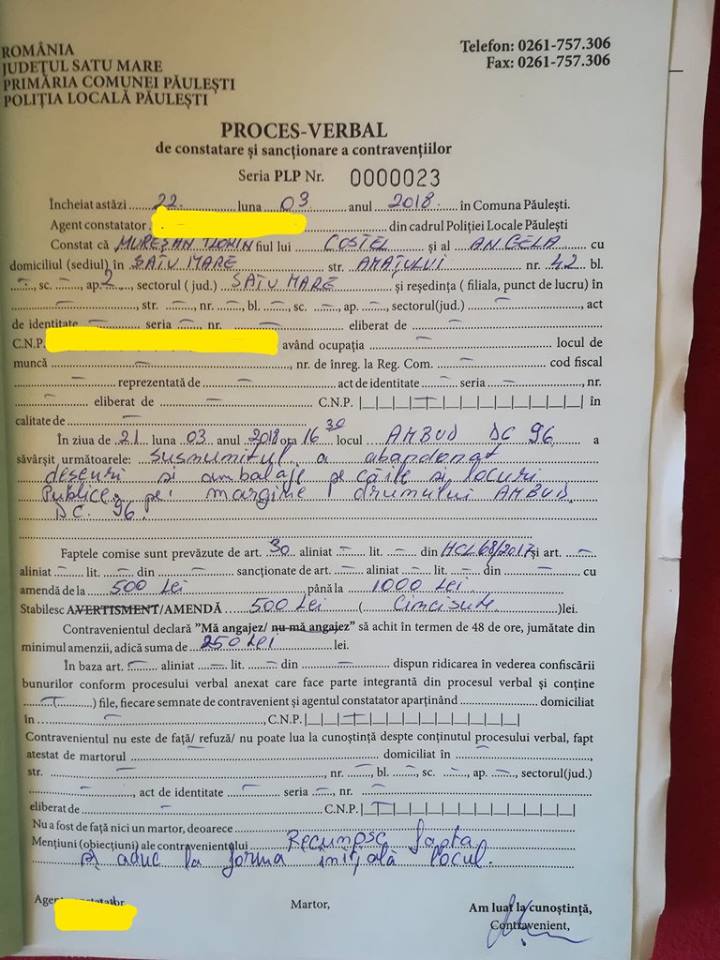 ROMÂNIA
JUDEŢUL SATU MARE
PRIMĂRIA COMUNEI PĂULEŞTI
POLIŢIA LOCALĂ PĂULEŞTI
Telefon: 0261-757.306
Fax: 0261-757.306
PROCES-VERBAL
de constatare şi sancţionare a contravenţiilor
Seria PLP Nr. 0000023
Încheiat astăzi 22 luna 03 anul 2018 în Comuna Păuleşti.
Agent constatator din cadrul Poliţiei Locale Păuleşti
Constat că MUREŞAN fiul lui COSTEL şi al ANGELA cu
domiciliul (sediul) în SATU MARE str. AMAŢULUI nr. 42 bl.
–, sc. –, ap. 2 sectorul (jud.) SATU MARE şi reşedinţa (filiala, punct de lucru) în
–, str. –, nr. –, bl. –, sc. –, ap. –, sectorul(jud.) –, act
de identitate – seria – nr. – eliberat de –
C.N.P. având ocupaţia – locul de
muncă –, nr. de înreg. la Reg. Com. – cod fiscal
– reprezentată de – act de identitate – seria –, nr.
– eliberat de – C.N.P. – în
calitate de –
În ziua de 21 luna 03 anul 2018 ora 16 30 locul AMBUD DC 96 a
săvârşit următoarele: susnumitul a abandonat
deseuri si ambalaje pe căile si locuri
Publice, pe marginea drumului AMBUD
DC. 96.
Faptele comise sunt prevăzute de art. 30 aliniat – lit. – din HCL 68/2017 şi art. –
aliniat – lit. – din – sancţionate de art. – aliniat – lit. – din – cu
amendă de la 500 Lei până la 1000 Lei
Stabilesc AVERTISMENT/AMENDĂ 500 Lei ( Cincisute )lei.
Contravenientul declară "Mă angajez/ nu mă angajez" să achit în termen de 48 de ore, jumătate din
minimul amenzii, adică suma de 250 Lei lei.
În baza art. – aliniat – lit. – din – dispun ridicarea în vederea confiscării
bunurilor conform procesului verbal anexat care face parte integrantă din procesul verbal şi conţine
( – ) file, fiecare semnate de contravenient şi agentul constatator aparţinând domiciliat
în –, C.N.P. –
Contravenientul nu este de faţă/ refuză/ nu poate lua la cunoştinţă despre conţinutul procesului verbal, fapt
atestat de martorul – domiciliat în –
str. –, nr. –, bl. –, sc. –, ap. –, sectorul(jud.)
–, act de identitate – seria –, nr. –
eliberat de – C.N.P. –
Nu a fost de faţă nici un martor, deoarece –
Menţiuni (obiecţiuni) ale contravenientului Recunosc fapta
si aduc la forma iniţială locul.
Agent constatator
Martor,
Am luat la cunoştinţă,
Contravenient,